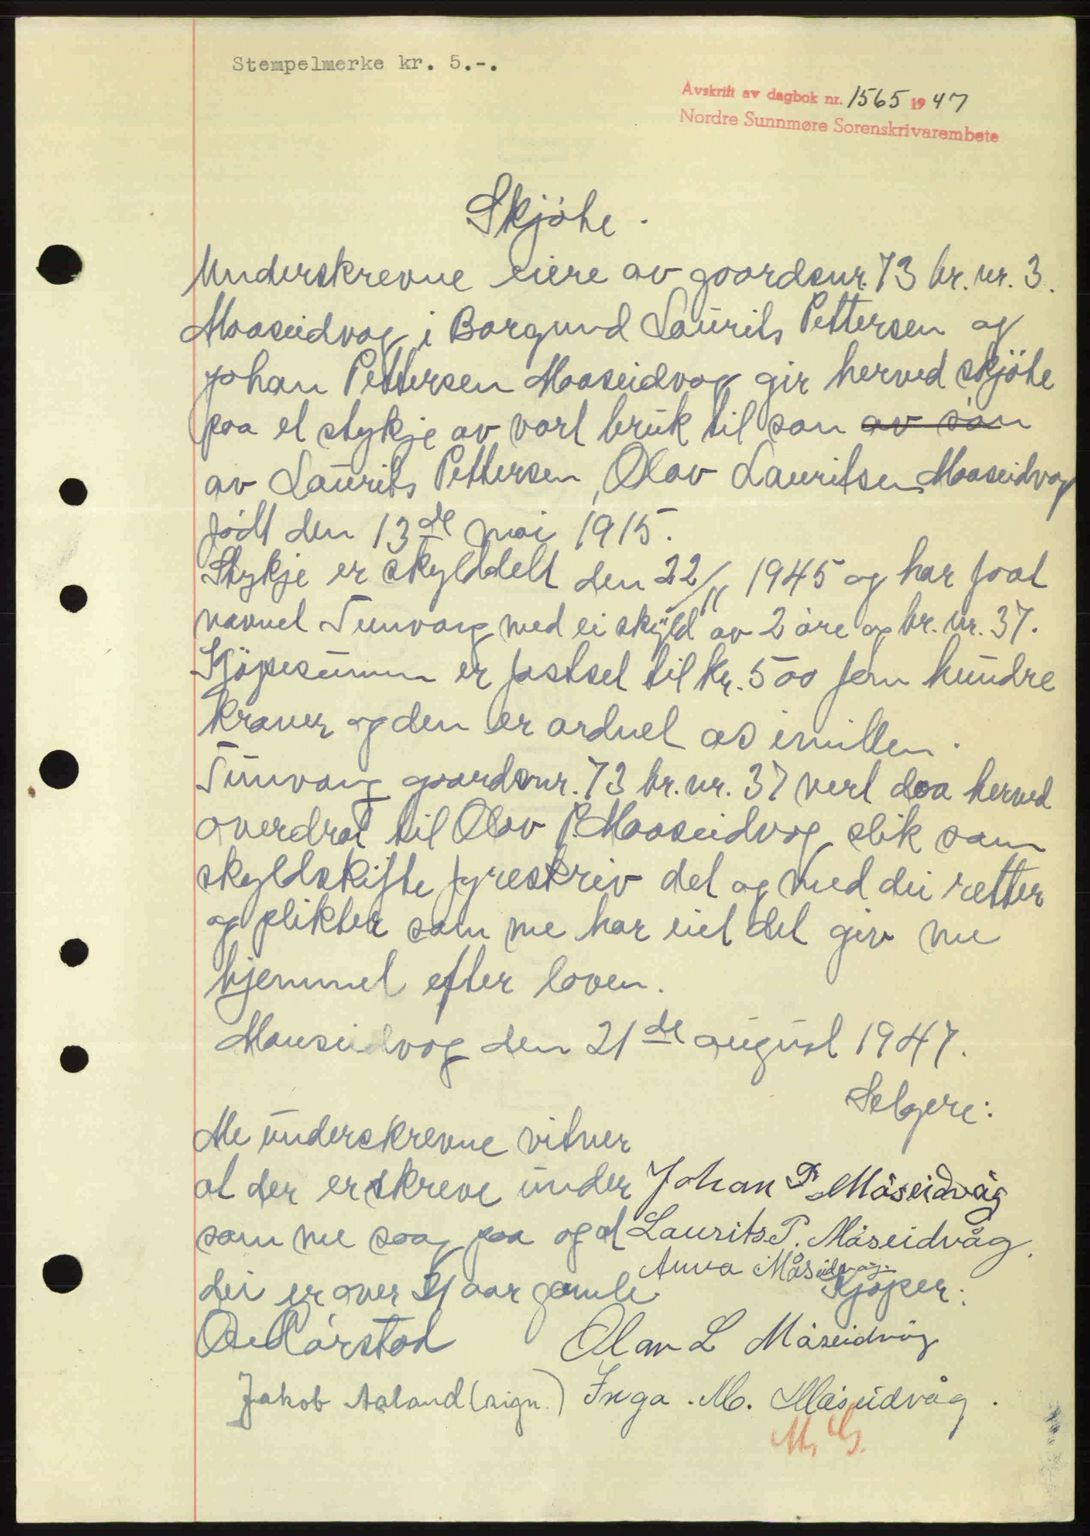 Stempelmerke kr. 5.-.
Avskrift av dagbok nr. 1565 1947
Nordre Sunnmøre Sorenskrivarembete
Skjöte.
Underskrevne eiere av goardsnr. 73 br. nr. 3.
Maaseidvog i Borgund Laurits Pettersen og
Johan Pettersen Maaseidvog gir herved skjöte
paa et stykje av vort bruk til son av son
av Laurits Pettersen, Olav Lauritsen Maaseidvog
födt den 13de mai 1915.
Stykje er skylddelt den 22/11 1945 og har foat
navnet Tunvang med ei skyld av 2 öre og br. nr. 37.
Kjöpesumen er fastset til kr. 500 fem hundre
kroner og den er ordnet os imillen.
Tunvang goardsnr. 73 br. nr. 37 vert daa herved
overdrat til Olav P. Maaseidvog slik som
skyldskifte fyreskriv det og med dei retter
og plikter som me har eiet det giv me
hjemmel efter loven.
Mauseidvog den 21de august 1947.
Selgere:
Me underskrevne vitner
at der er skreve under Johan P. Måseidvåg
som me saag paa og at Laurits P. Måseidvåg.
Anna Måseidvåg.
dei er over 21 aar gamle Kjöper:
O. Rörstad Olav L Måseidvåg
Jakob Aaland (sign.) Inga. M. Måseidvåg.